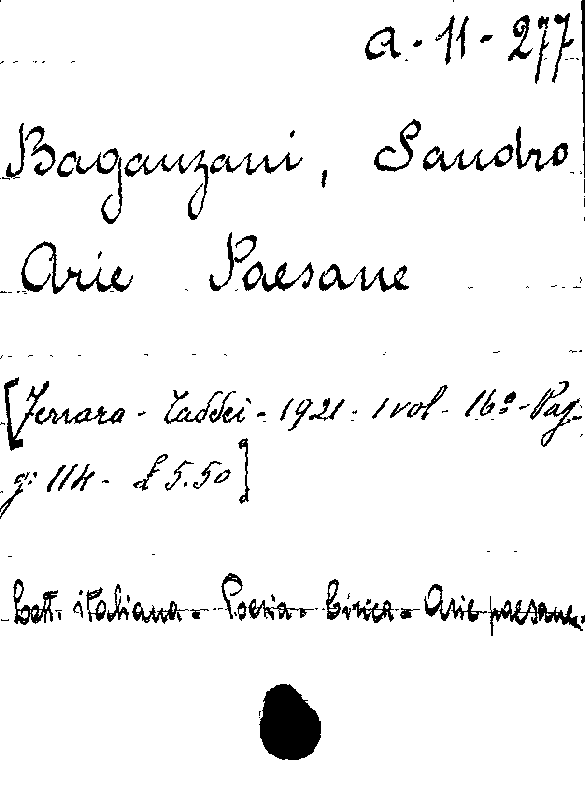 a-11-277
Baganzani, Sandro
Arie Paesane
[Ferrara - Taddei - 1921 - 1 vol - 16º - Pag-
g: 114 - £ 5.50]
Lett. italiana - Poesia - Lirica - Arie paesane.